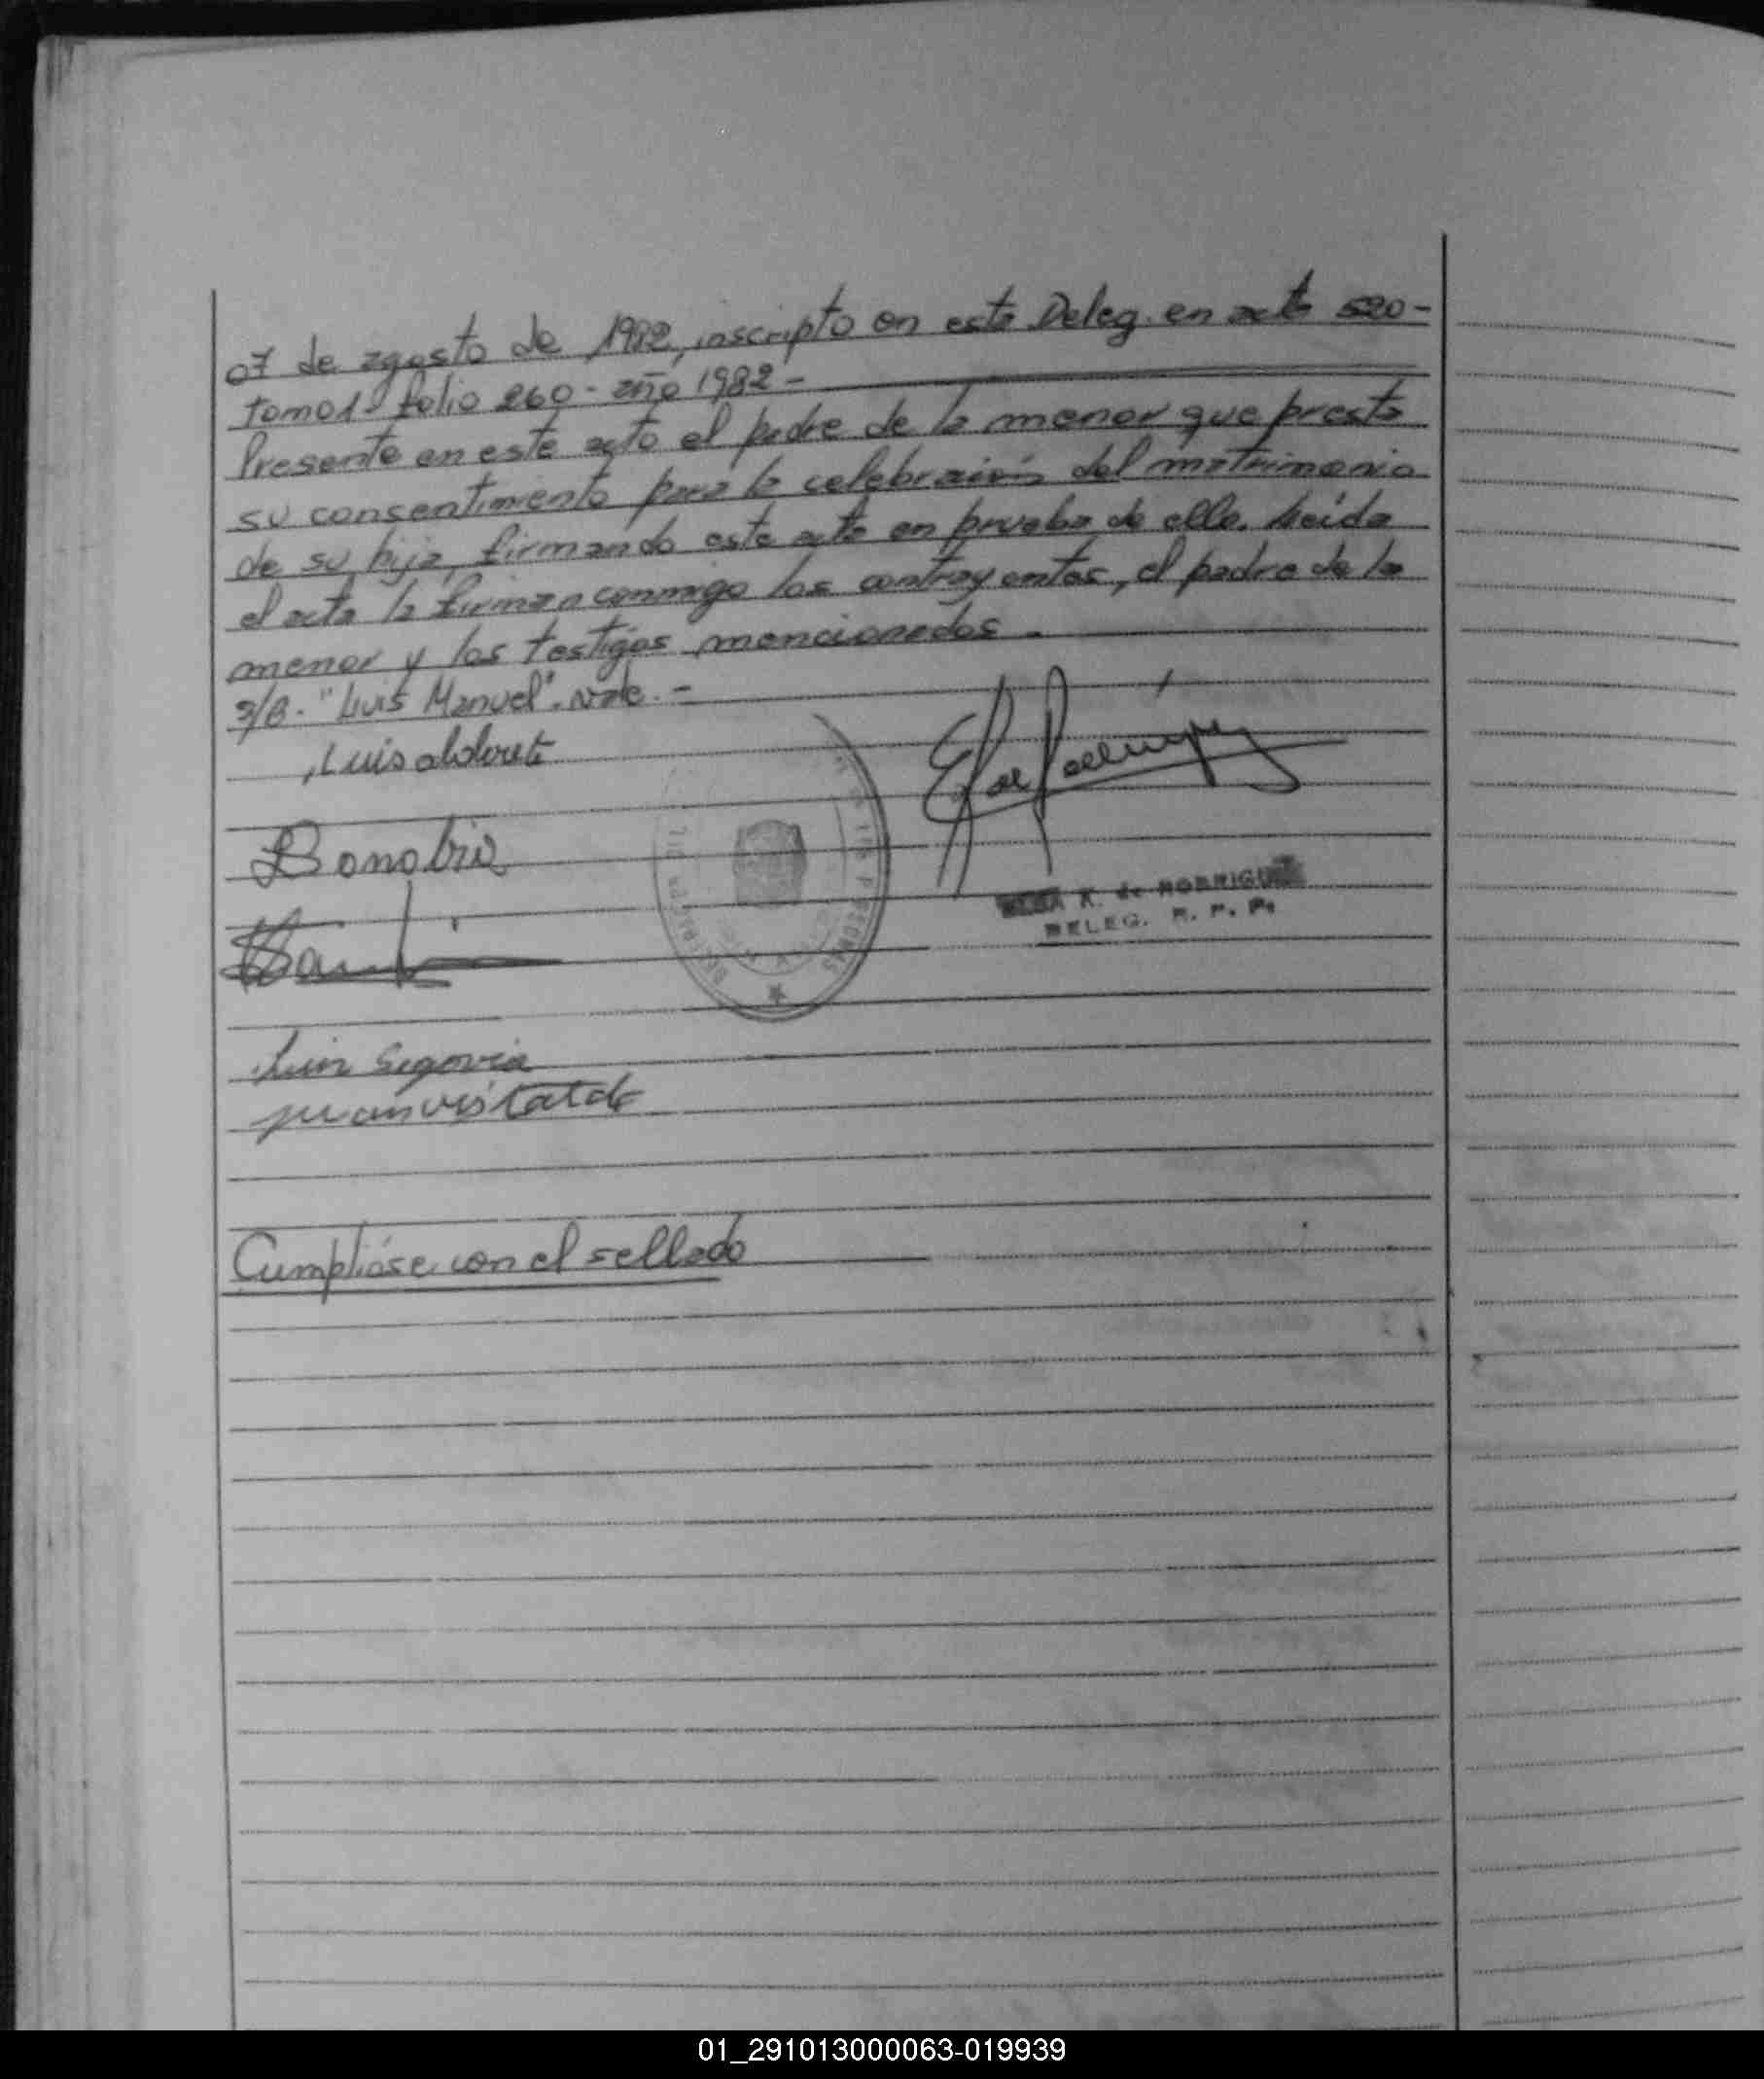 07 de agosto de 1982, inscripto en esta Deleg. en acta 520-
tomo 1- folio 260 - año 1982 -
Presente en este acto el padre de la menor que presta
su consentimiento para la celebración del matrimonio
de su hija, firmando este acta en prueba de ello. Leída
el acta la firman conmigo los contrayentes, el padre de la
menor y los testigos mencionados.
S/B. "Luis Manuel". Vale. -
Luis
Luis Segovia
de RODRIGUEZ
DELEG. R. P. P.
Cumplióse con el sellado
01_291013000063-019939